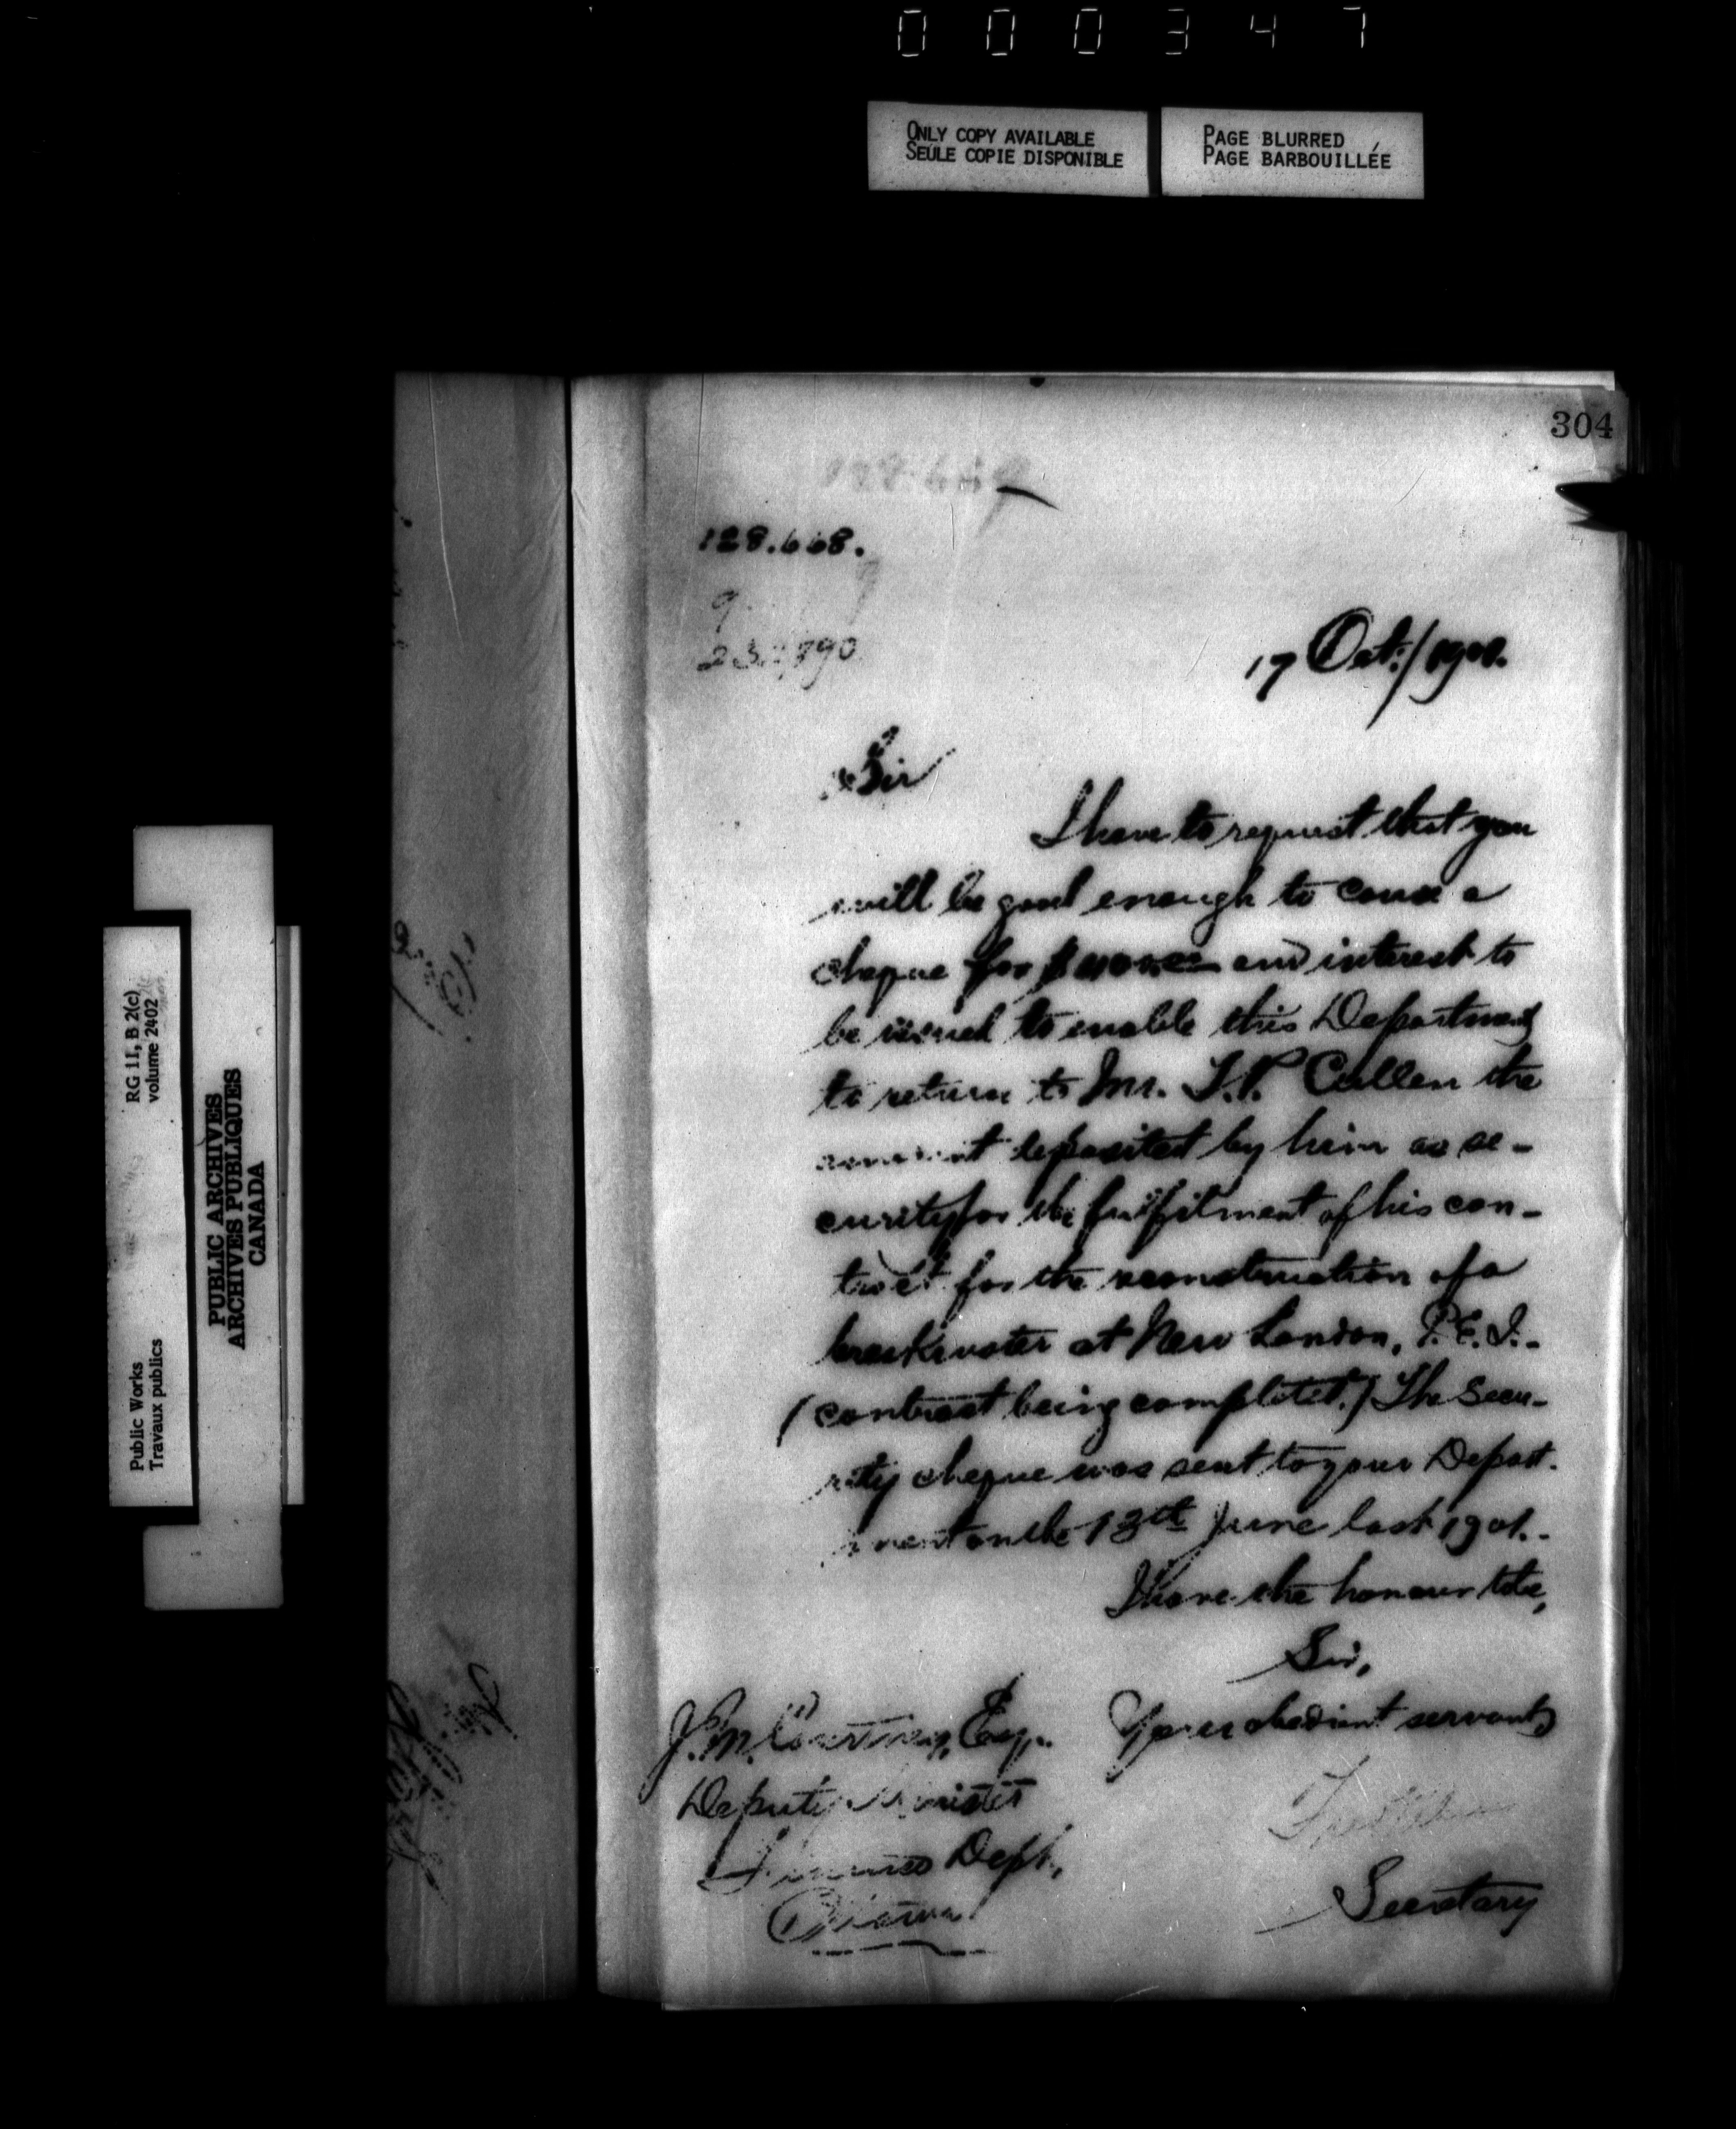 000347
ONLY COPY AVAILABLE
SEULE COPIE DISPONIBLE
PAGE BLURRED
PAGE BARBOUILLÉE
304
128.668.
17 Oct:/1901.
Sir
I have to request that you
will be good enough to cause a
cheque for and interest to
be issued to enable this Department
to return to Mr. T.P. Cullen the
amount deposited by him as se-
curity for the fulfilment of his con-
tract for the reconstruction of a
breakwater at New London, P.E.I.-
(contract being completed.) The Secu-
rity cheque was sent to your Depart-
ment on the 13th June last 1901.-
I have the honour to be,
Sir,
Your obedient servant,
J. M. Courtney, Esq..
Deputy Minister
Finance Dept.,
Ottawa
Secretary
RG 11, B 2(c)
volume 2402
Public Works
Travaux publics
PUBLIC ARCHIVES
ARCHIVES PUBLIQUES
CANADA